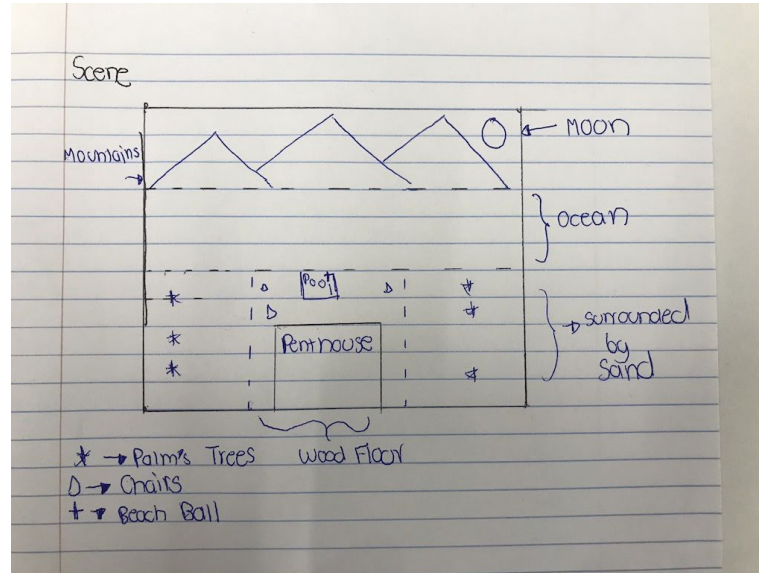 Scene
Moon
Mountains
Ocean
Pool
Penthouse
surrounded
by
Sand
Wood Floor
* → Palm's Trees
D → Chairs
+ → Beach Ball